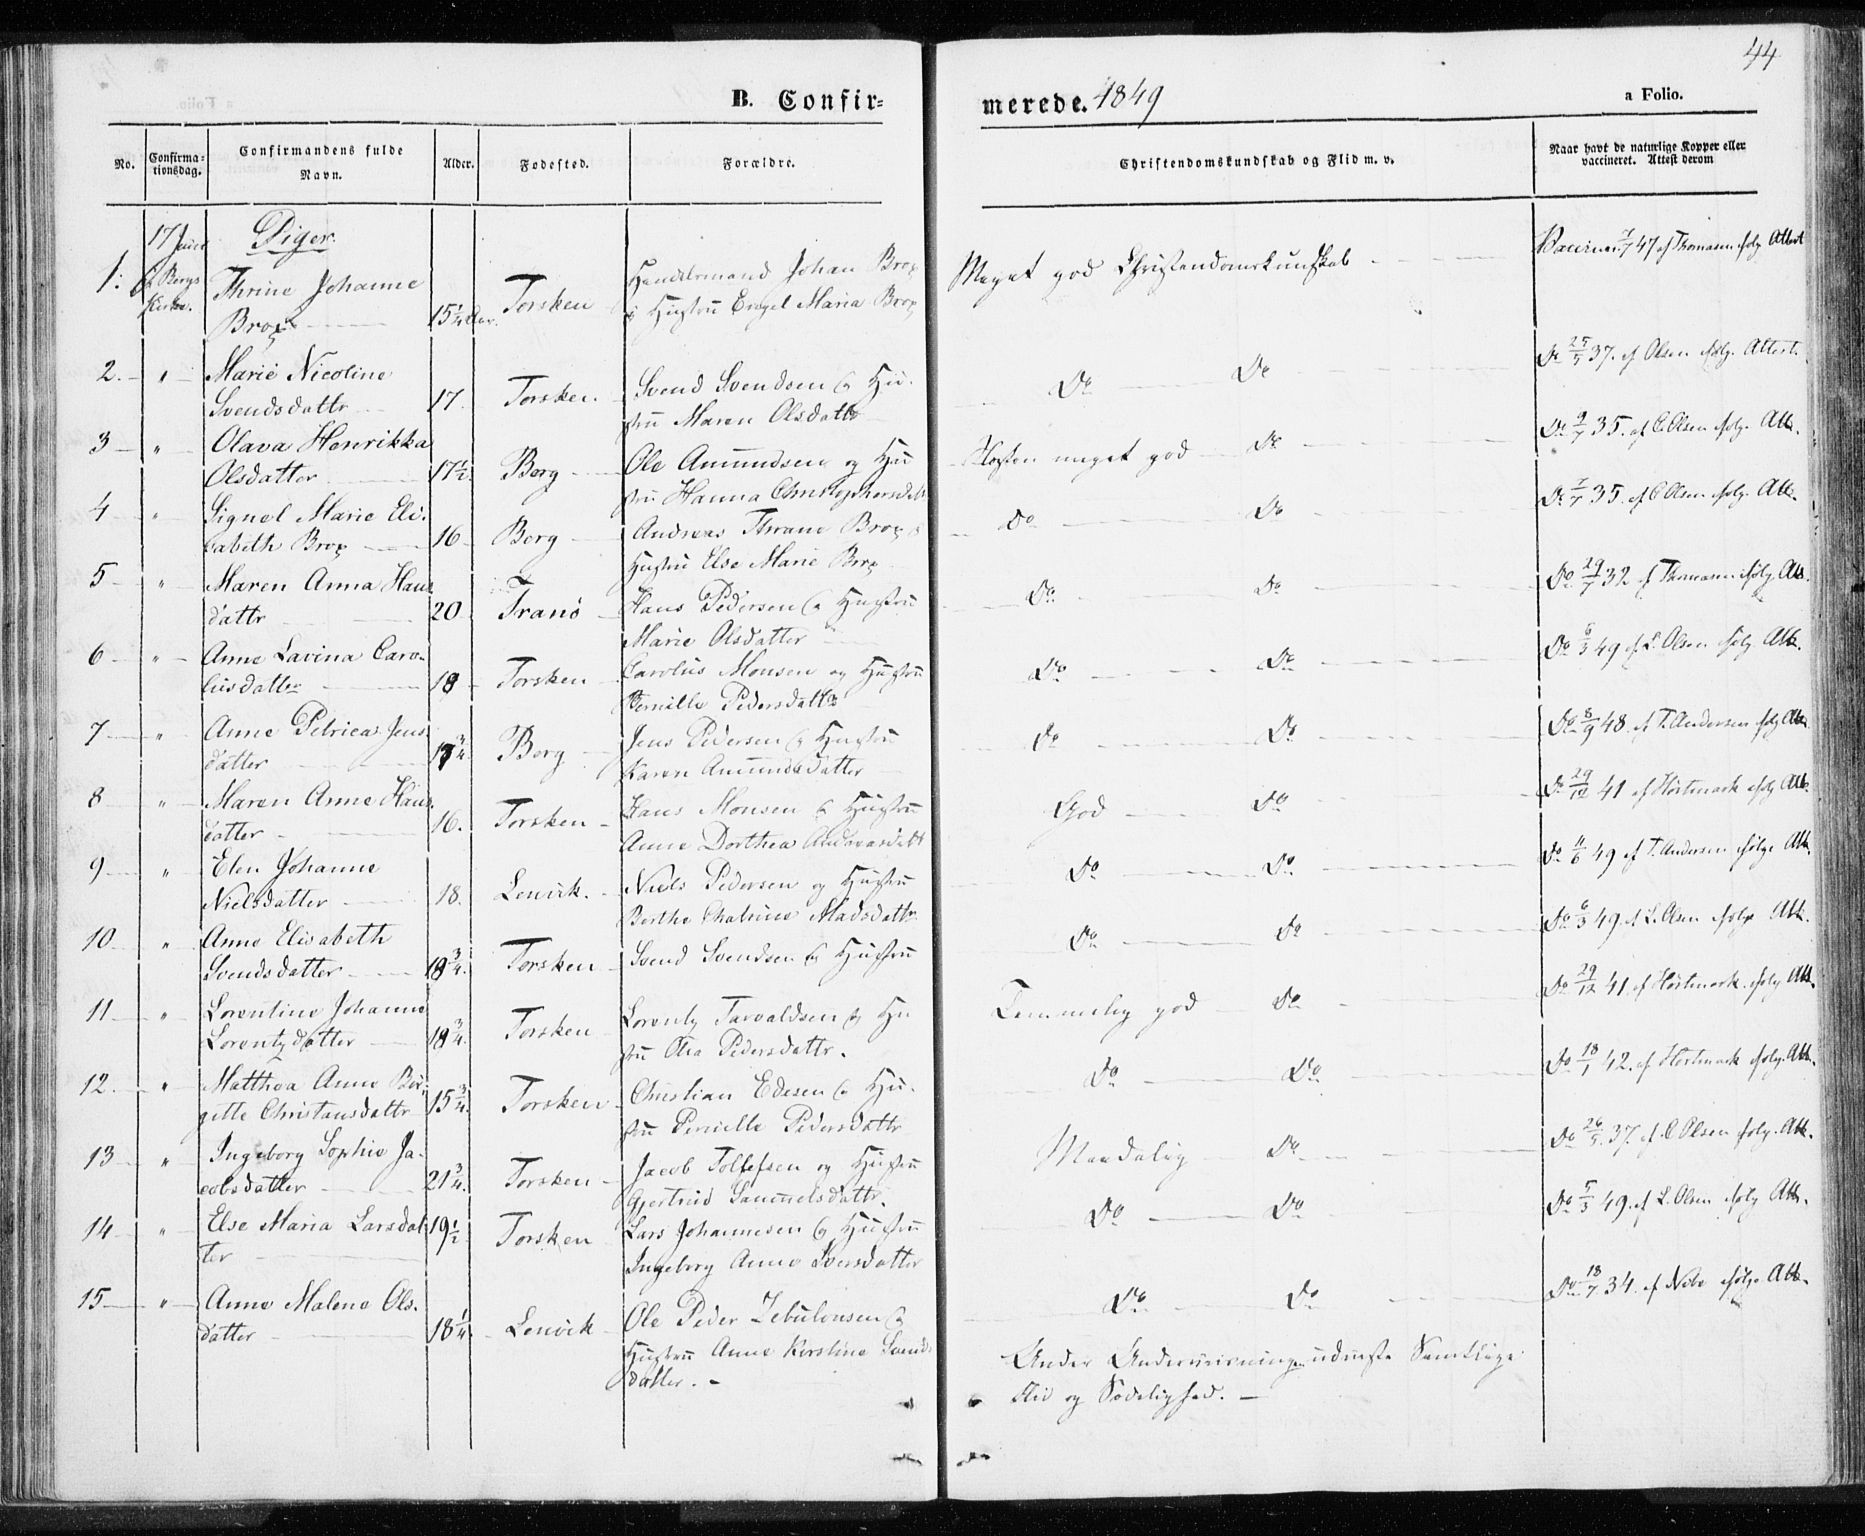 44
B. Confir-
merede. 1849
a Folio.
No.
Confirma-
tionsdag.
Confirmandens fulde
Navn.
Alder.
Fødested.
Forældre.
Christendomskundskab og Flid m. v.
Naar havt de naturlige Kopper eller
vaccineret. Attest derom
17 Juni
Bergs
Kirke.
Piger.
1. Thrine Johanne
Brox
15 1/4 Aar.
Torsken
Handelsmand Johan Brox
Hustru Engel Maria Brox
Meget god Christendomskundskab
47 af Thomasen ifølg Attest
2. " Marie Nicoline
Svendsdattr
17.
Torsken.
Svend Svendsen & Hu-
stru Maren Olsdattr
Do Do
Do 25/5 37. af Olsen ifølg. Attest.
3 " Olava Henrikka
Olsdatter
17 1/2.
Berg
Ole Amundsen og Hu
stru Hanna Christophersdatt
Næsten meget god Do
Do 9/7 35. af C. Olsen ifølg. Att.
4 " Signel Marie Eli-
sabeth Brox
16
Berg
Andreas Thrane Brox &
Hustru Else Marie Brox
Do Do
Do 7/7 35. af C Olsen ifølg. Att.
5 " Maren Anna Hans
datter
20
Tranö
Hans Pedersen & Hustru
Marie Olsdatter
Do Do
Do 29/7 32 af Thomasen ifølg. Att.
6 " Anne Lavina Caro-
lusdatter
18
Torsken
Carolus Monsen og Hustru
Pernille Pedersdattr
Do Do
Do 6/3 49 af L. Olsen ifølg. Att.
7 " Anne Petrica Jens
datter
17 3/4
Berg
Jens Pedersen & Hustru
Karen Amundsdatter
Do Do
Do 8/9 48. af T. Andersen ifølg Att.
8 " Maren Anne Hans
datter
16.
Torsken
Hans Monsen & Hustru
Anne Dorthea Andreasdatt
God Do
Do 29/12 41 af Hostmark ifølg Att.
9 " Elen Johanne
Nielsdatter
18.
Lenvik.
Niels Pedersen og Hustru
Berthe Chatrine Madsdattr
Do Do
Do 11/6 49 af T. Andersen ifølge Att.
10 " Anne Elisabeth
Svendsdatter
18 3/4.
Torsken
Svend Svendsen & Hustru
Do Do
Do 6/3 49. af L. Olsen ifølge Att.
11 " Lorentine Johanne
Lorentzdatter
18 3/4.
Torsken
Lorentz Tarvaldsen & Hu
stru Olia Pedersdattr.
Temmelig god Do
Do 29/12 41. af Hostmark. ifølg Att.
12. " Matthea Anne Bir-
gitte Christansdattr
15 3/4.
Torsken
Christian Edisen & Hu-
stru Pernille Pedersdattr
Do Do
Do 18/1 42. af Hostmark ifølg. Att.
13 " Ingeborg Sophie Ja-
cobsdatter
21 3/4.
Torsken
Jacob Tollefsen og Hustru
Gjertrud Samuelsdattr.
Maadelig Do
Do 26/5. 37. af C Olsen ifølg. Att.
14 " Else Maria Larsdat-
ter
19 1/2
Torsken
Lars Johannesen & Hustru
Ingeborg Anne Iversdatter
Do Do
Do 5/3 49. af L. Olsen ifølg Att.
15 " Anne Malene Ols-
datter
18 1/4.
Lenvik
Ole Peder Zebulonsen &
Hustru Anne Kirstine Svends
datter.
Do Do
Do 18/7 34. af Nebe ifølge Att.
Under Underviisningen udviste Samtlige
Flid og Sædelighed.